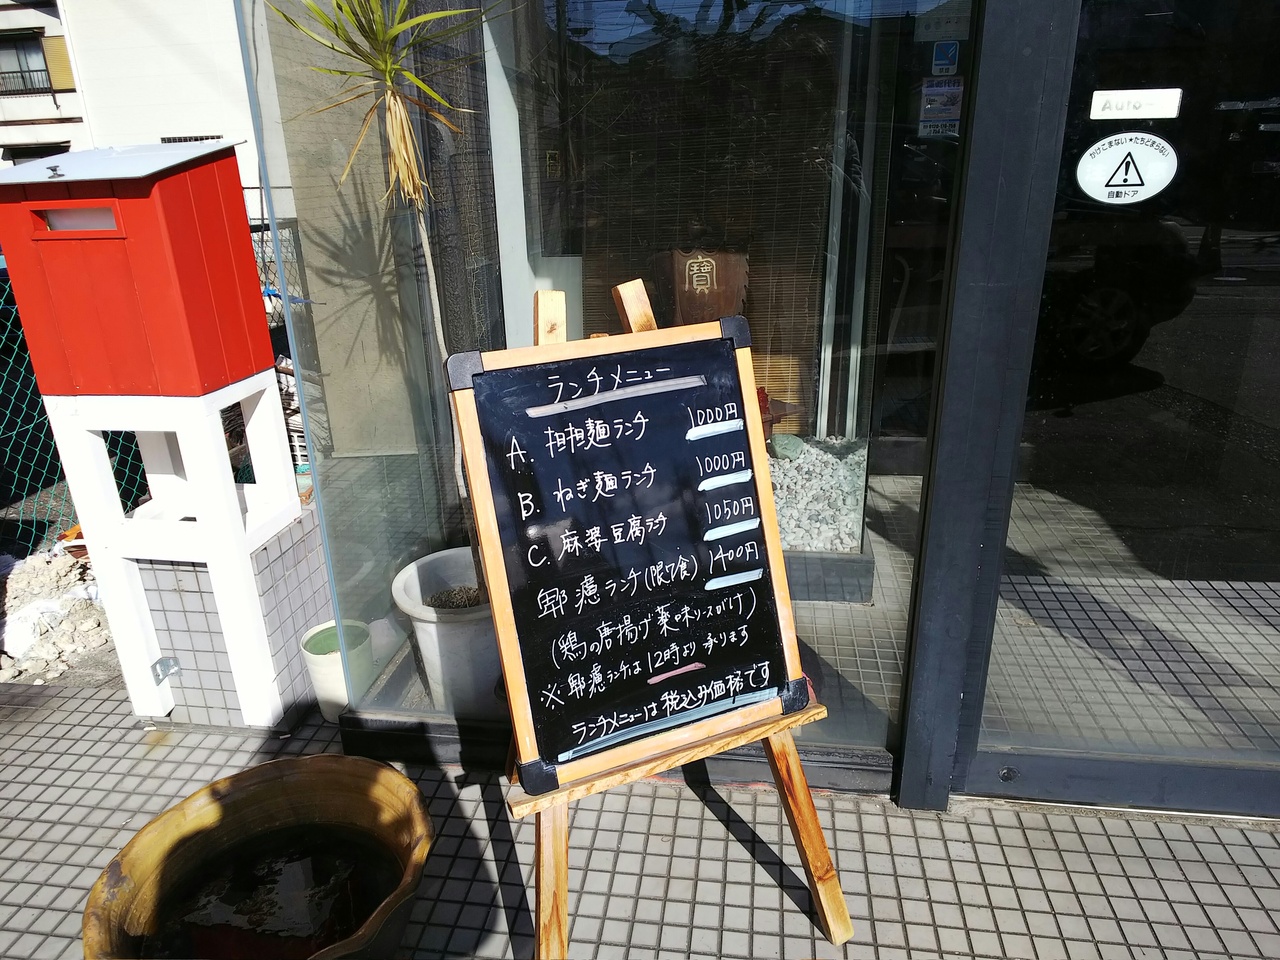 ランチメニュー
A. 担担麺ランチ 1000円
B. ねぎ麺ランチ 1000円
C. 麻婆豆腐ランチ 1050円
ランチ(限7食) 1400円
(鶏の唐揚げ薬味ソースがけ)
※ ランチは12時より承ります
ランチメニューは税込み価格です
寶
Auto
かけこまない★たちどまらない
自動ドア